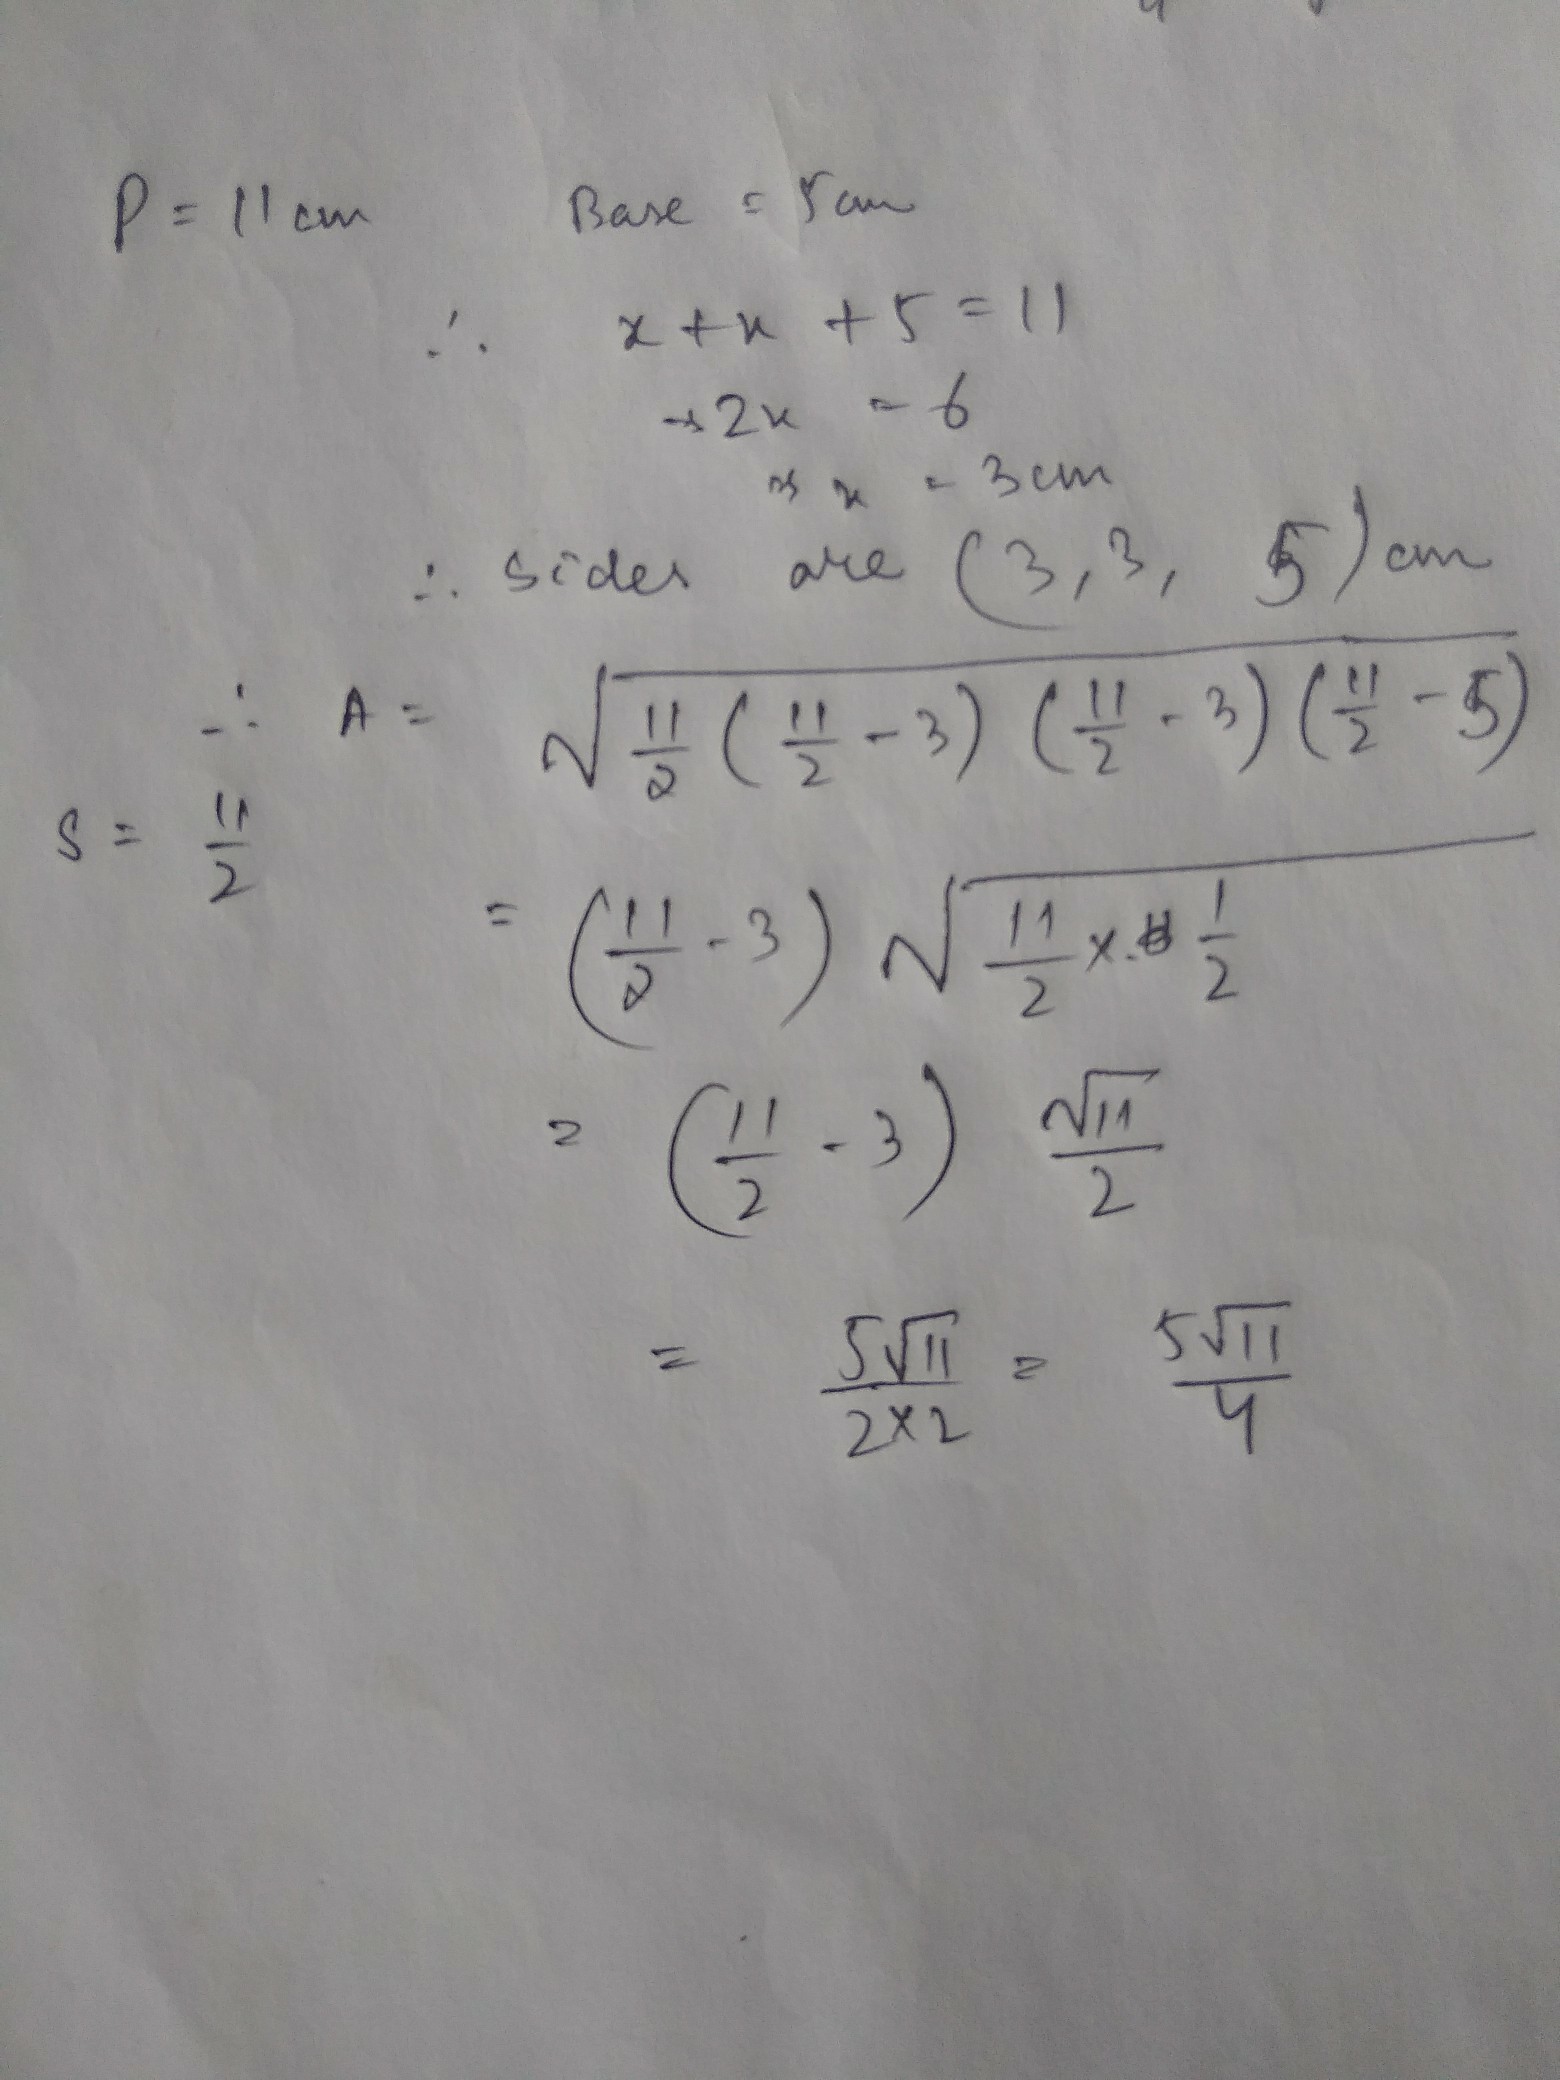 P = 11 cm Base = 5 cm
∴ x + x + 5 = 11
⇒ 2x = 6
⇒ x = 3 cm
∴ sides are (3, 3, 5) cm
∴ A = √(11/2 (11/2 - 3) (11/2 - 3) (11/2 - 5))
S = 11/2
= (11/2 - 3) √(11/2 × 1/2)
= (11/2 - 3) √11/2
= 5√11/2×2 = 5√11/4